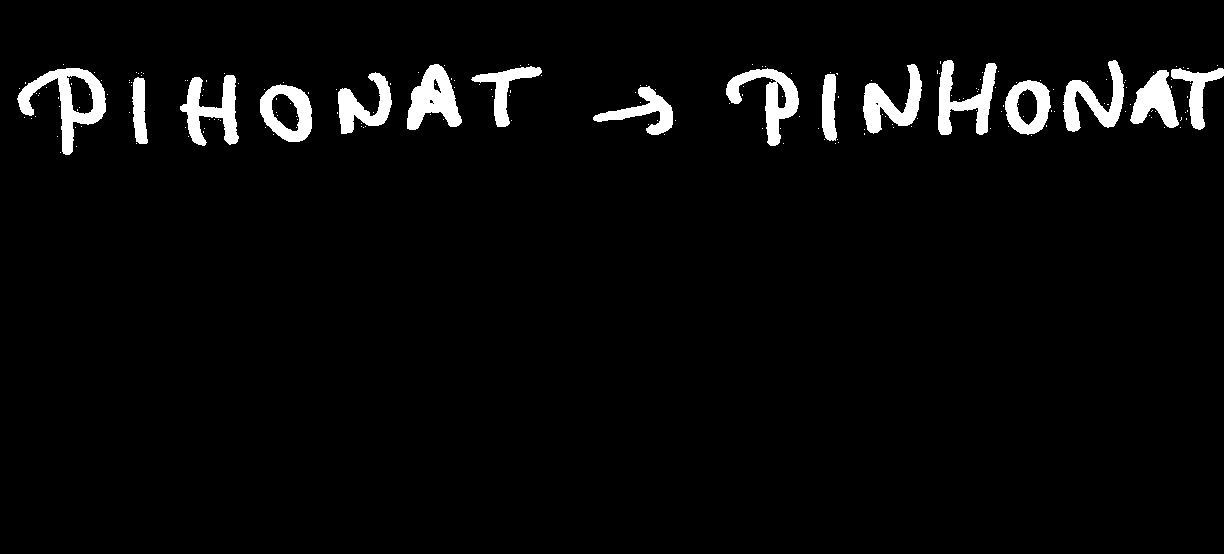 PIHONAT → PINHONAT